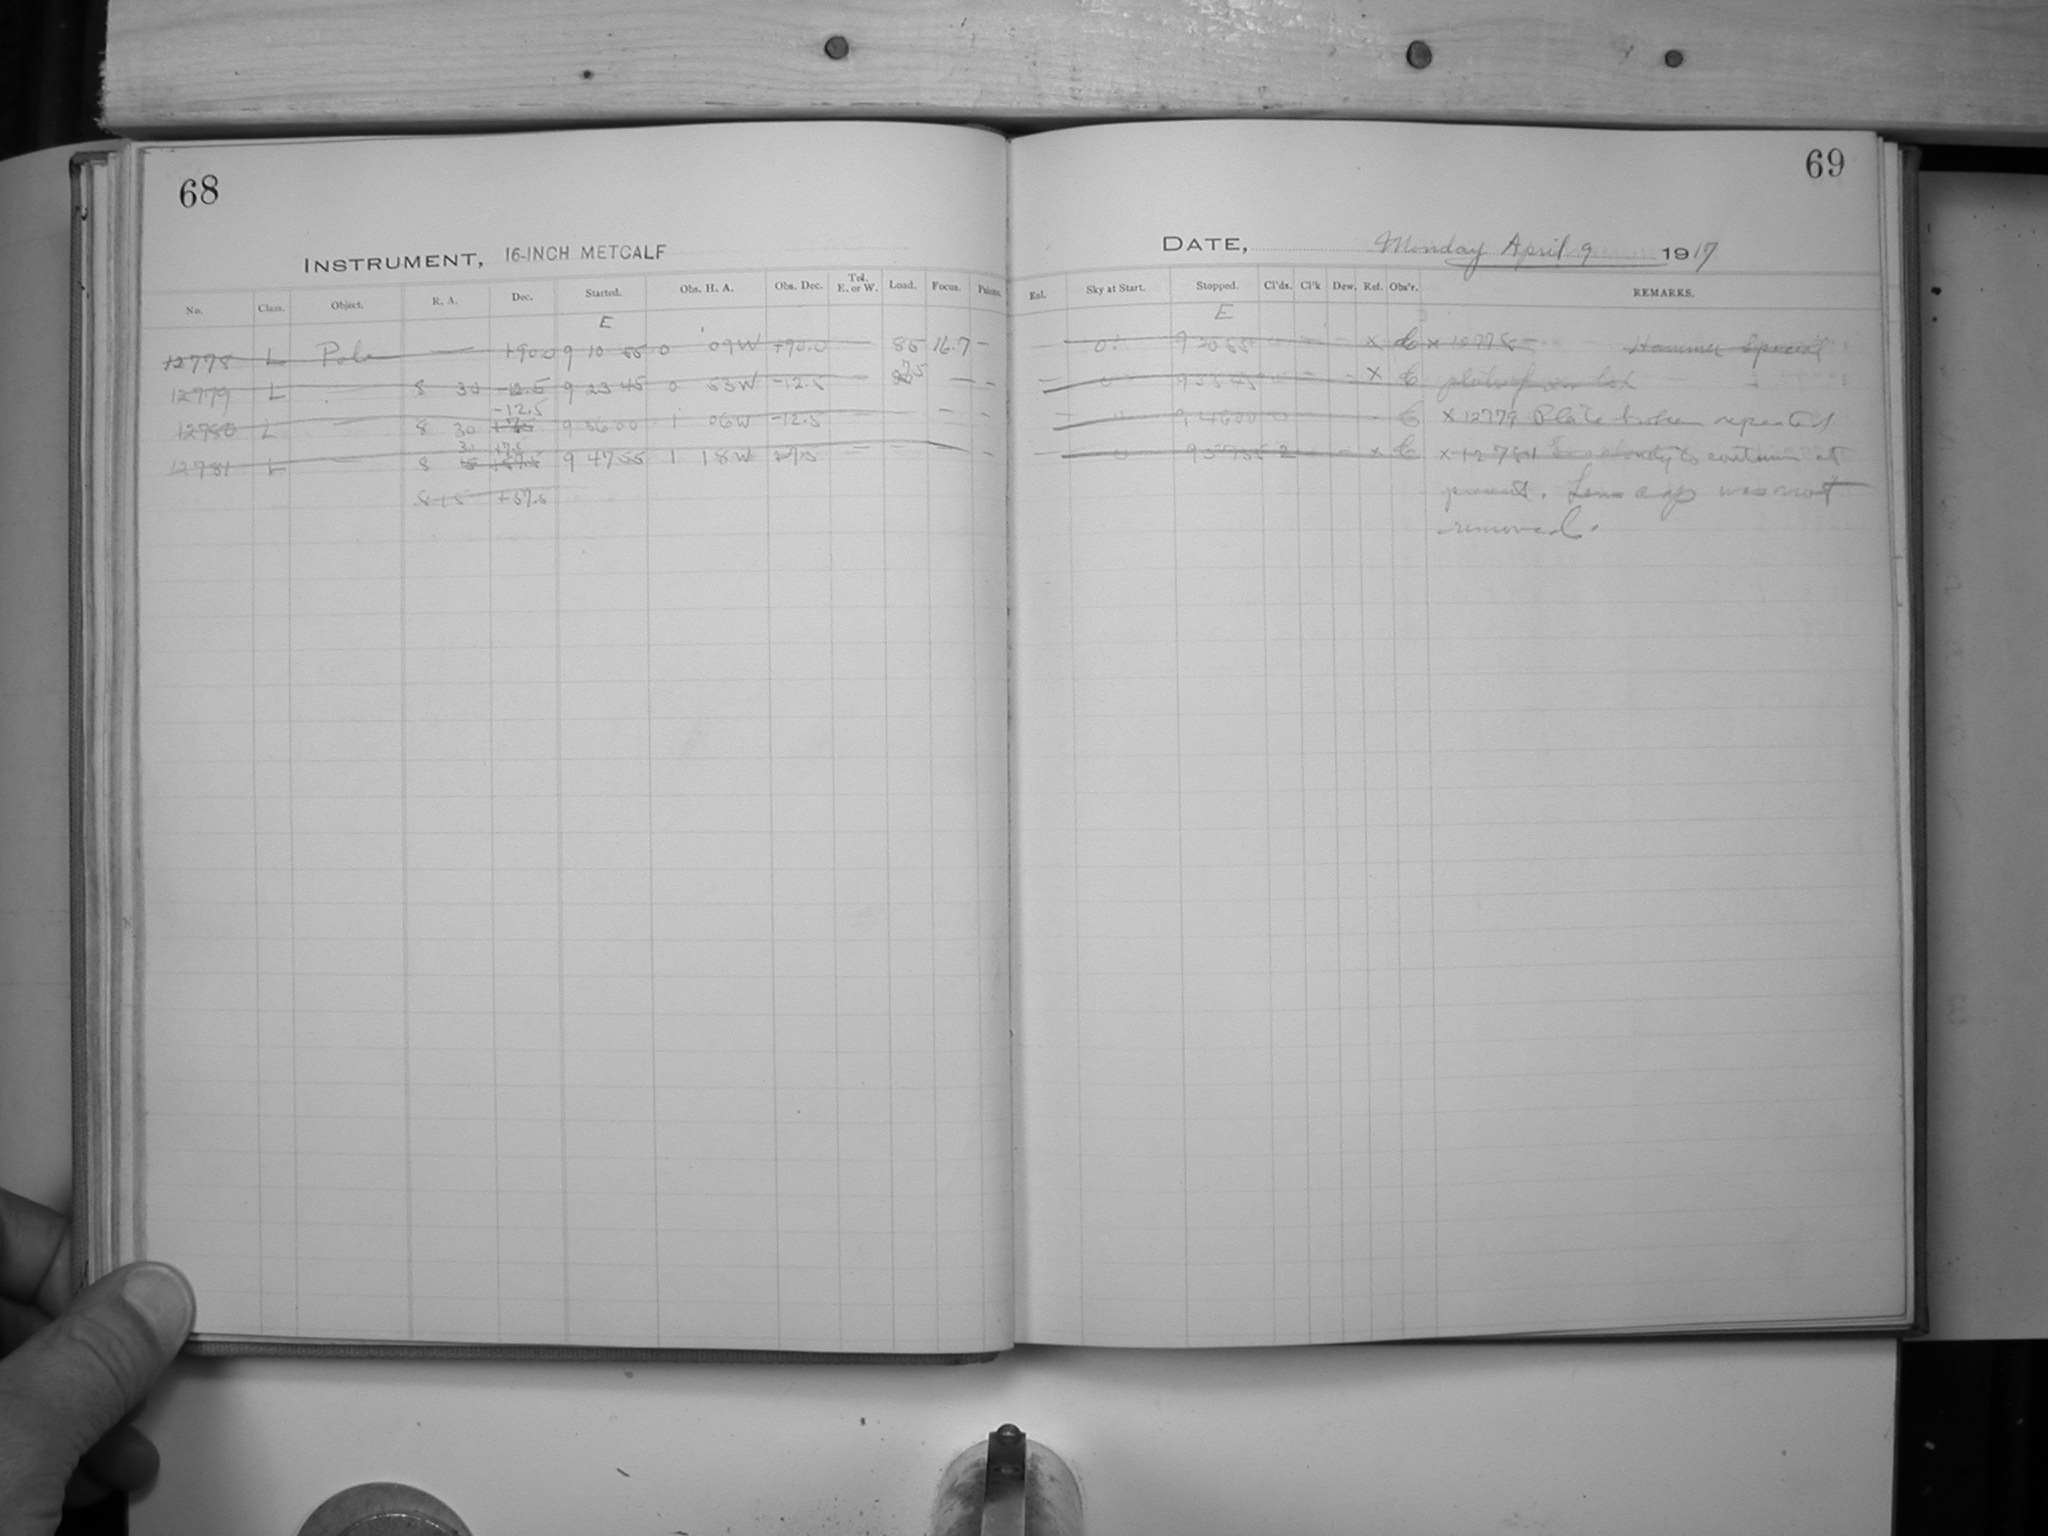 68
INSTRUMENT, 16-INCH METCALF
No. Class. Object. R. A. Dec. Started. Obs. H. A. Obs. Dec. Tel. E. or W. Load. Focus.
E
12778 L Pole — +90.0 9 10 55 0 09W +90.0 — 85 16.7 –
75
12779 L 8 30 -12.5 9 23 45 0 53W -12.5 — –
-12.5
12780 L — 8 30 9 36 00 1 06W -12.5 — – –
30 +7.5
12781 L — 8 9 47 55 1 18W +7.5 — — –
8 15 +37.5
69
DATE, Monday April 9 1917
Sky at Start. Stopped. Cl'ds. Cl'k Dew. Ref. Obs'r. REMARKS.
E
— 0 9 20 55 — × C × 12778 Hammer Special
— 9 33 45 – – × C plate from box
— 9 46 00 C × 12779 Plate broken repeated
— 0 9 57 55 2 – – × C × 12781 Too cloudy to continue at
present. Lens cap was not
removed.